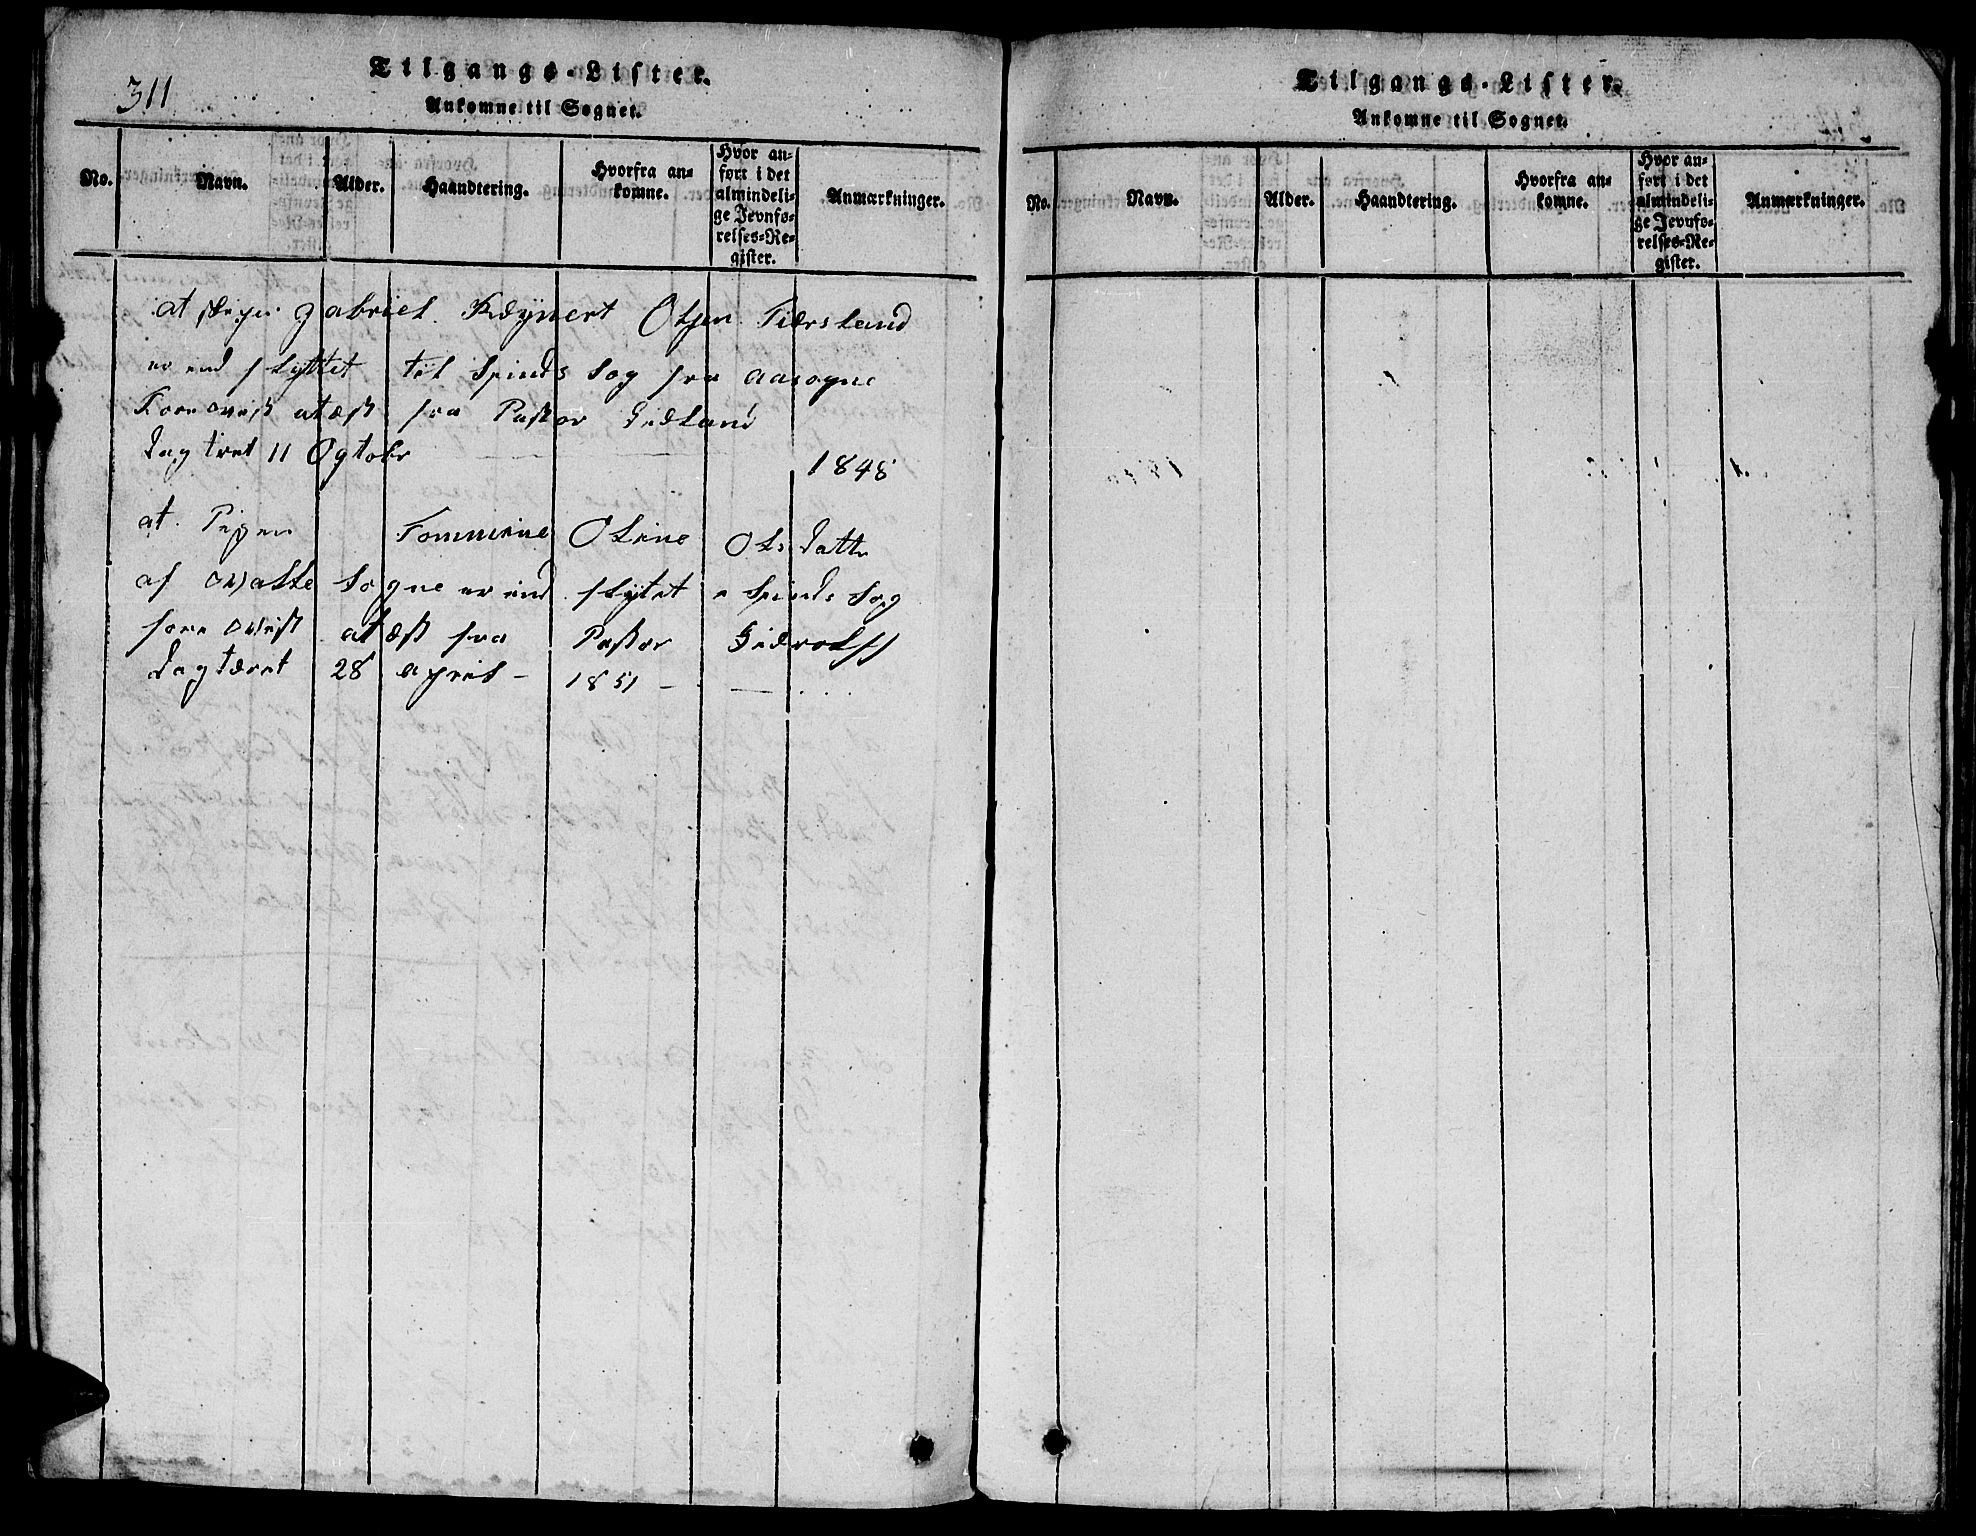 311
Tilgangs-Lister.
Ankomne til Sognet.
No.
Navn.
Alder.
Haandtering.
Hvorfra an=
komne.
Hvor an=
ført i det
almindeli=
ge Jevnfø=
relses=Re=
gister.
Anmærkninger.
at Gabriel Reynert Olsen Tiersland
er end flyttet til Spinds Sog fra aasogne
Fore Atæst fra Pastor
Dagtret 11 Ogtobr 1848
at Pigen Tommine Oline Olsdatte
af Sogne er end flytet i Spinds Sog
fore atæst fra Pastor
Dagtæret 28 april - 1851 -
Tilgangs-Lister.
Ankomne til Sognet.
No.
Navn.
Alder.
Haandtering.
Hvorfra an=
komne.
Hvor an=
ført i det
almindeli=
ge Jevnfø=
relses=Re=
gister.
Anmærkninger.